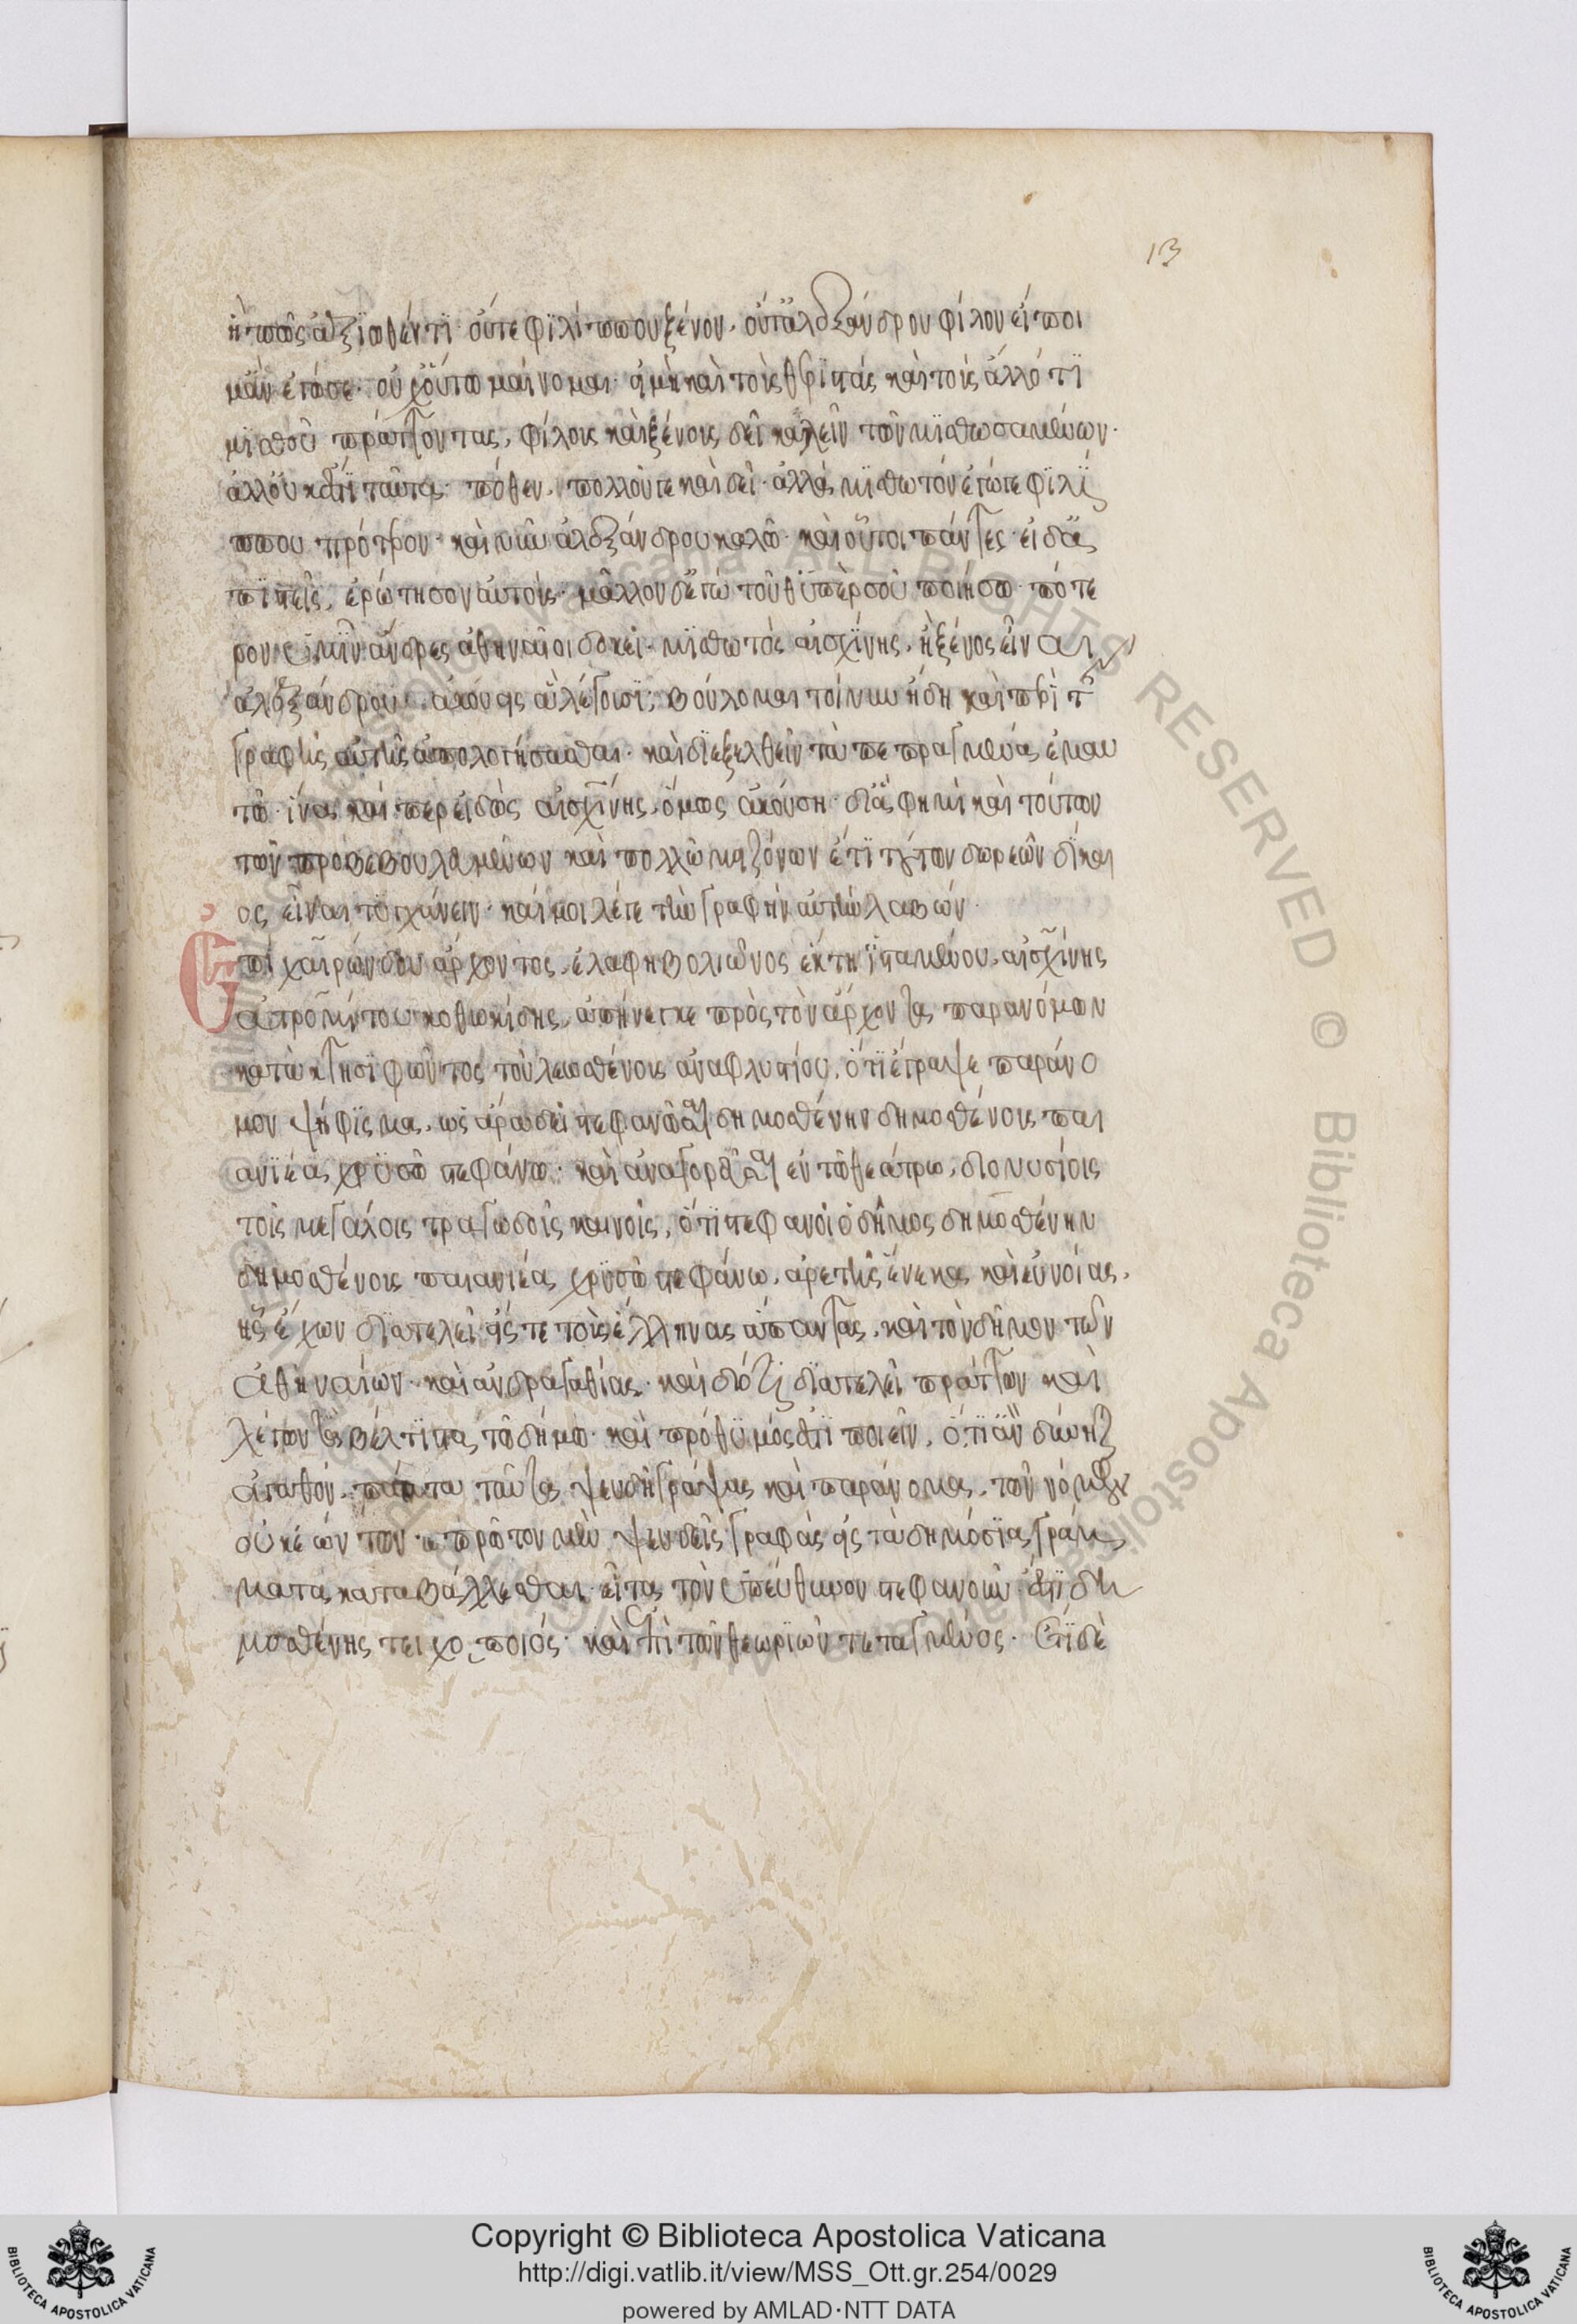 13
ἢ πῶς ἀξιωθέντι· οὔτε φιλίππου ξένον, οὔτ' ἀλεξάνδρου φίλον εἴποιμ'
μ' ἂν ἐγώ σε· οὐχ οὕτω μαίνομαι· εἰ μὴ καὶ τοὺς θεριστὰς καὶ τοὺς ἄλλό τι
μισθοῦ πράττοντας, φίλους καὶ ξένους δεῖ καλεῖν τῶν μισθωσαμένων·
ἀλλ' οὐκ ἔστι ταῦτα· πόθεν, πολλοῦ γε καὶ δεῖ· ἀλλὰ μισθωτόν ἐγώ σε φιλίπ
που πρότερον· καὶ νῦν ἀλεξάνδρου καλῶ· καὶ οὗτοι πάντες· εἰ δ' ἀ
πιστεῖς, ἐρώτησον αὐτούς· μᾶλλον δ' ἐγὼ τοῦθ' ὑπὲρ σοῦ ποιήσω· πότε
ρον ὑμῖν ἄνδρες ἀθηναῖοι δοκεῖ· μισθωτὸς αἰσχίνης, ἢ ξένος εἶναι
ἀλεξάνδρου· ἀκούεις ἃ λέγουσι; βούλομαι τοίνυν ἤδη καὶ περὶ τῆς
γραφῆς αὐτῆς ἀπολογήσασθαι· καὶ διεξελθεῖν τὰ πεπραγμένα ἐμαυ
τῶ· ἵνα καίπερ εἰδὼς αἰσχίνης, ὅμως ἀκούση· δι' ἅ φημι καὶ τούτων
τῶν προβεβουλευμένων καὶ πολλῶ μειζόνων ἔτι τούτων δωρεῶν δίκαι
ος εἶναι τυγχάνειν· καί μοι λέγε τὴν γραφὴν αὐτὴν λαβών·
Ἐπὶ χαιρώνδου ἄρχοντος, ἐλαφηβολιῶνος ἕκτη ἱσταμένου, αἰσχίνης
ἀτρομήτου κοθωκίδης, ἀπήνεγκε πρὸς τὸν ἄρχοντα παρανόμων
κατὰ κτησιφῶντος τοῦ λεωσθένους ἀναφλυστίου, ὅτι ἔγραψε παράνο
μον ψήφισμα, ὡς ἄρα δεῖ στεφανῶσαι δημοσθένην δημοσθένους παι
ανιέα χρυσῶ στεφάνω· καὶ ἀναγορεῦσαι ἐν τῶ θεάτρω, διονυσίοις
τοῖς μεγάλοις τραγωδοῖς καινοῖς, ὅτι στεφανοῖ ὁ δῆμος δημοσθένην
δημοσθένους παιανιέα χρυσῶ στεφάνω, ἀρετῆς ἕνεκα καὶ εὐνοίας,
ἧς ἔχων διατελεῖ εἴς τε τοὺς ἕλληνας ἅπαντας, καὶ τὸν δῆμον τῶν
ἀθηναίων· καὶ ἀνδραγαθίας· καὶ διότι διατελεῖ πράττων καὶ
λέγων τὰ βέλτιστα τῶ δήμω· καὶ πρόθυμός ἐστι ποιεῖν, ὅ,τι ἂν δύνηται
ἀγαθόν· πάντα ταῦτα ψευδῆ γράψας καὶ παράνομα, τῶν νόμων
οὐκ ἐώντων· πρῶτον μὲν ψευδεῖς γραφὰς εἰς τὰ δημόσια γράμ
ματα καταβάλλεσθαι· εἶτα τὸν ὑπεύθυνον στεφανοῦν· ἔστι δὲ δη
μοσθένης τειχοποιός· καὶ ἐπὶ τῶν θεωρικῶν τεταγμένος· Ἔτι δὲ
Copyright © Biblioteca Apostolica Vaticana
http://digi.vatlib.it/view/MSS_Ott.gr.254/0029
powered by AMLAD·NTT DATA